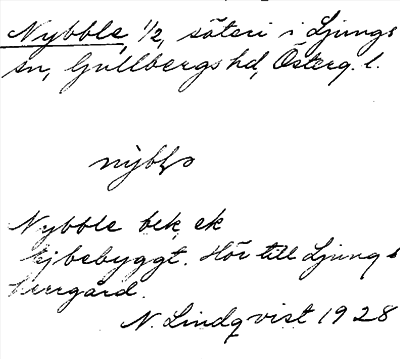 Nybble, 1/2, säteri i Ljungs
sn, Gullbergs hd, Österg. l.
Nybble bek. ek
Ej bebyggt. Hör till Ljungs
herrgård.
N. Lindqvist 1928